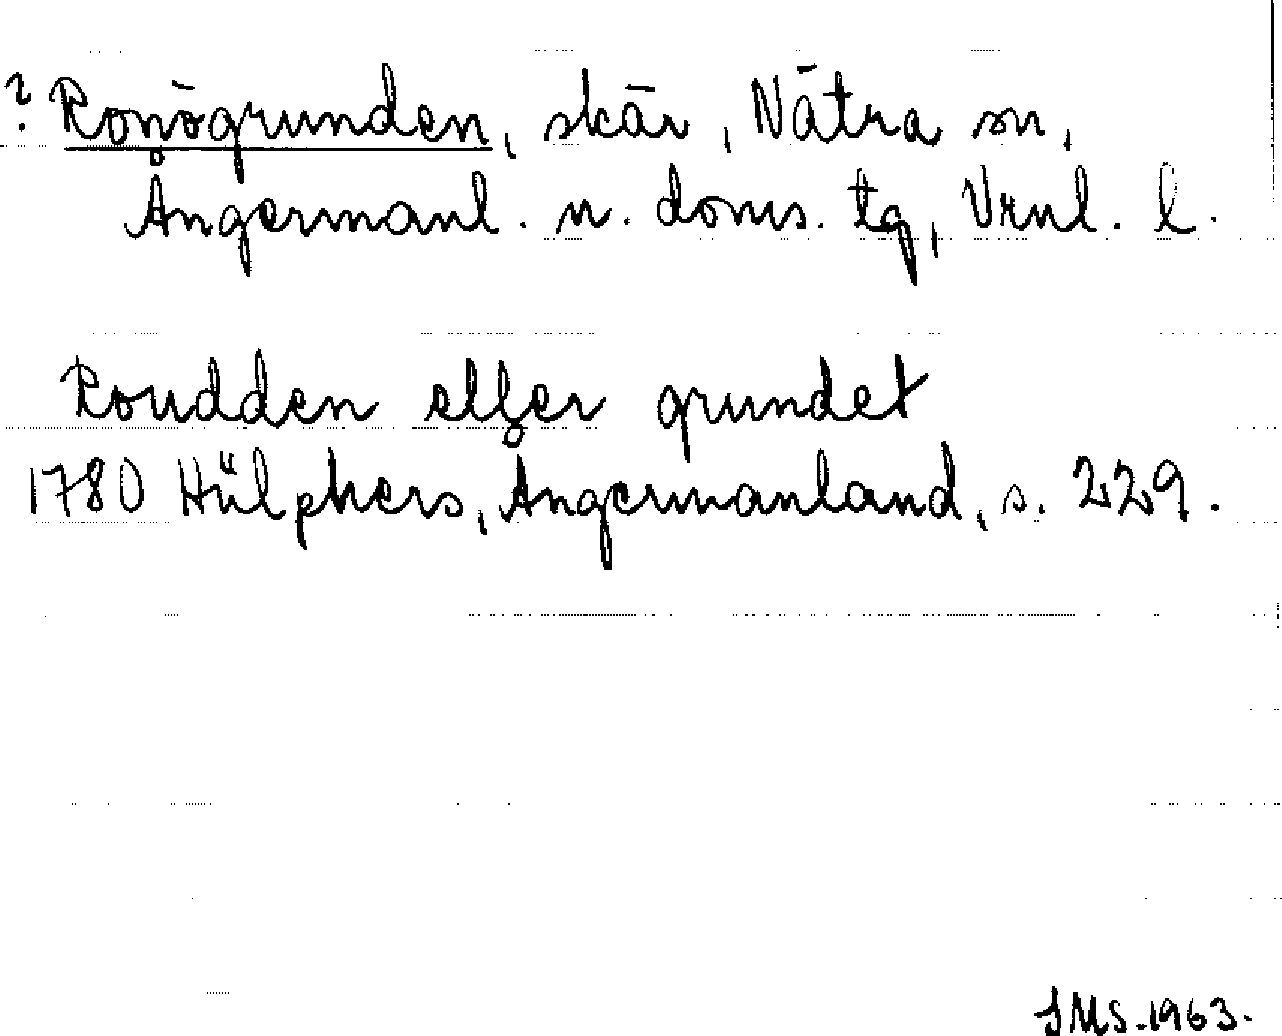 ? Ronögrunden, skär, Nätra sn,
Ångermanl. n. doms. tg, Vrnl. l.
Roudden eller grundet
1780 Hülphers, Angermanland, s. 229.
JMS. 1963.